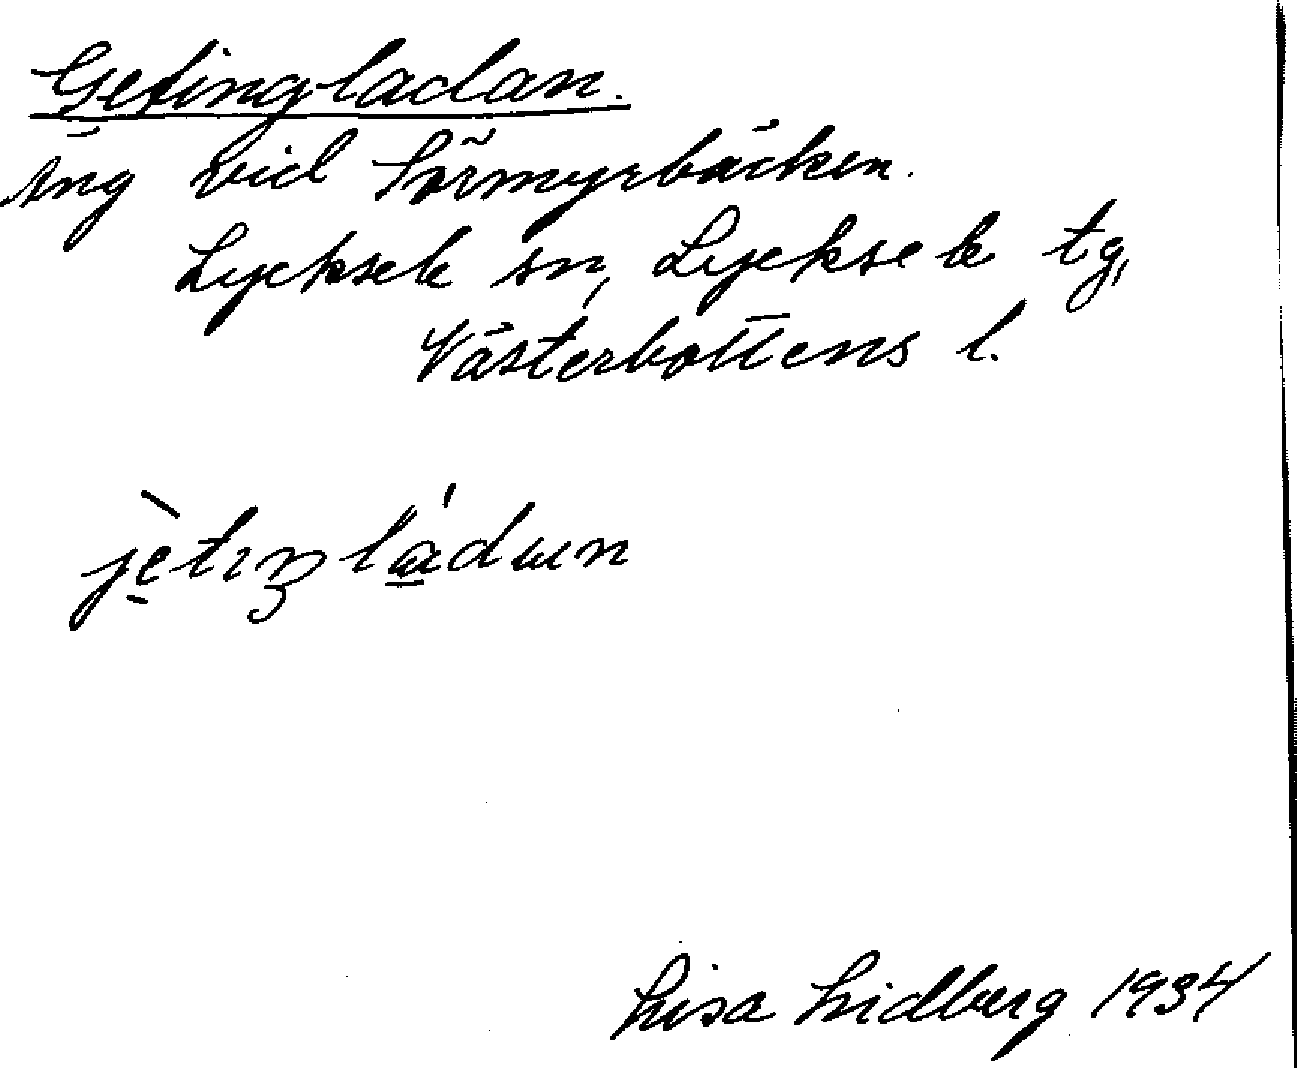 Getingladan.
äng vid Sörmyrbäcken.
Lycksele sn, Lycksele tg,
Västerbottens l.
Lisa Lidberg 1934